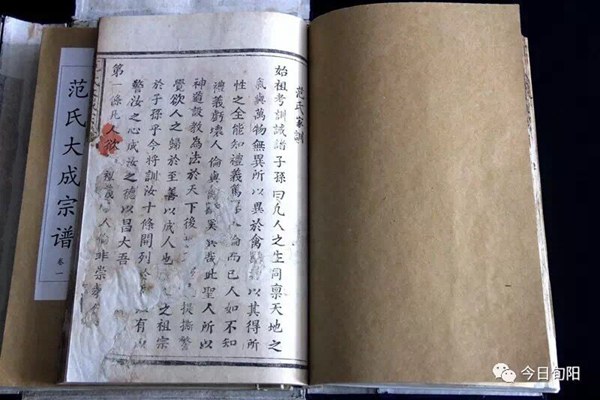 范氏家訓
始祖考訓誡諸子孫曰凡人之生同稟天地之
氣與萬物無異所以異於禽以其得所
性之全能知禮義篤倫而已人如不知
禮義虧壞人倫與哉此聖人所以
神道設教為法於天下後提撕警
覺欲人之歸於至善以成人也之祖宗
於子孫乎今將訓汝十條開列有以
警汝之心成汝之德以昌大吾
第一源凡人欲人倫非崇
范氏大成宗谱
卷一
今日旬阳